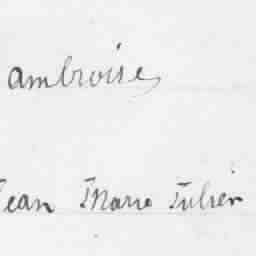 ambroise
Jean Marie Julien